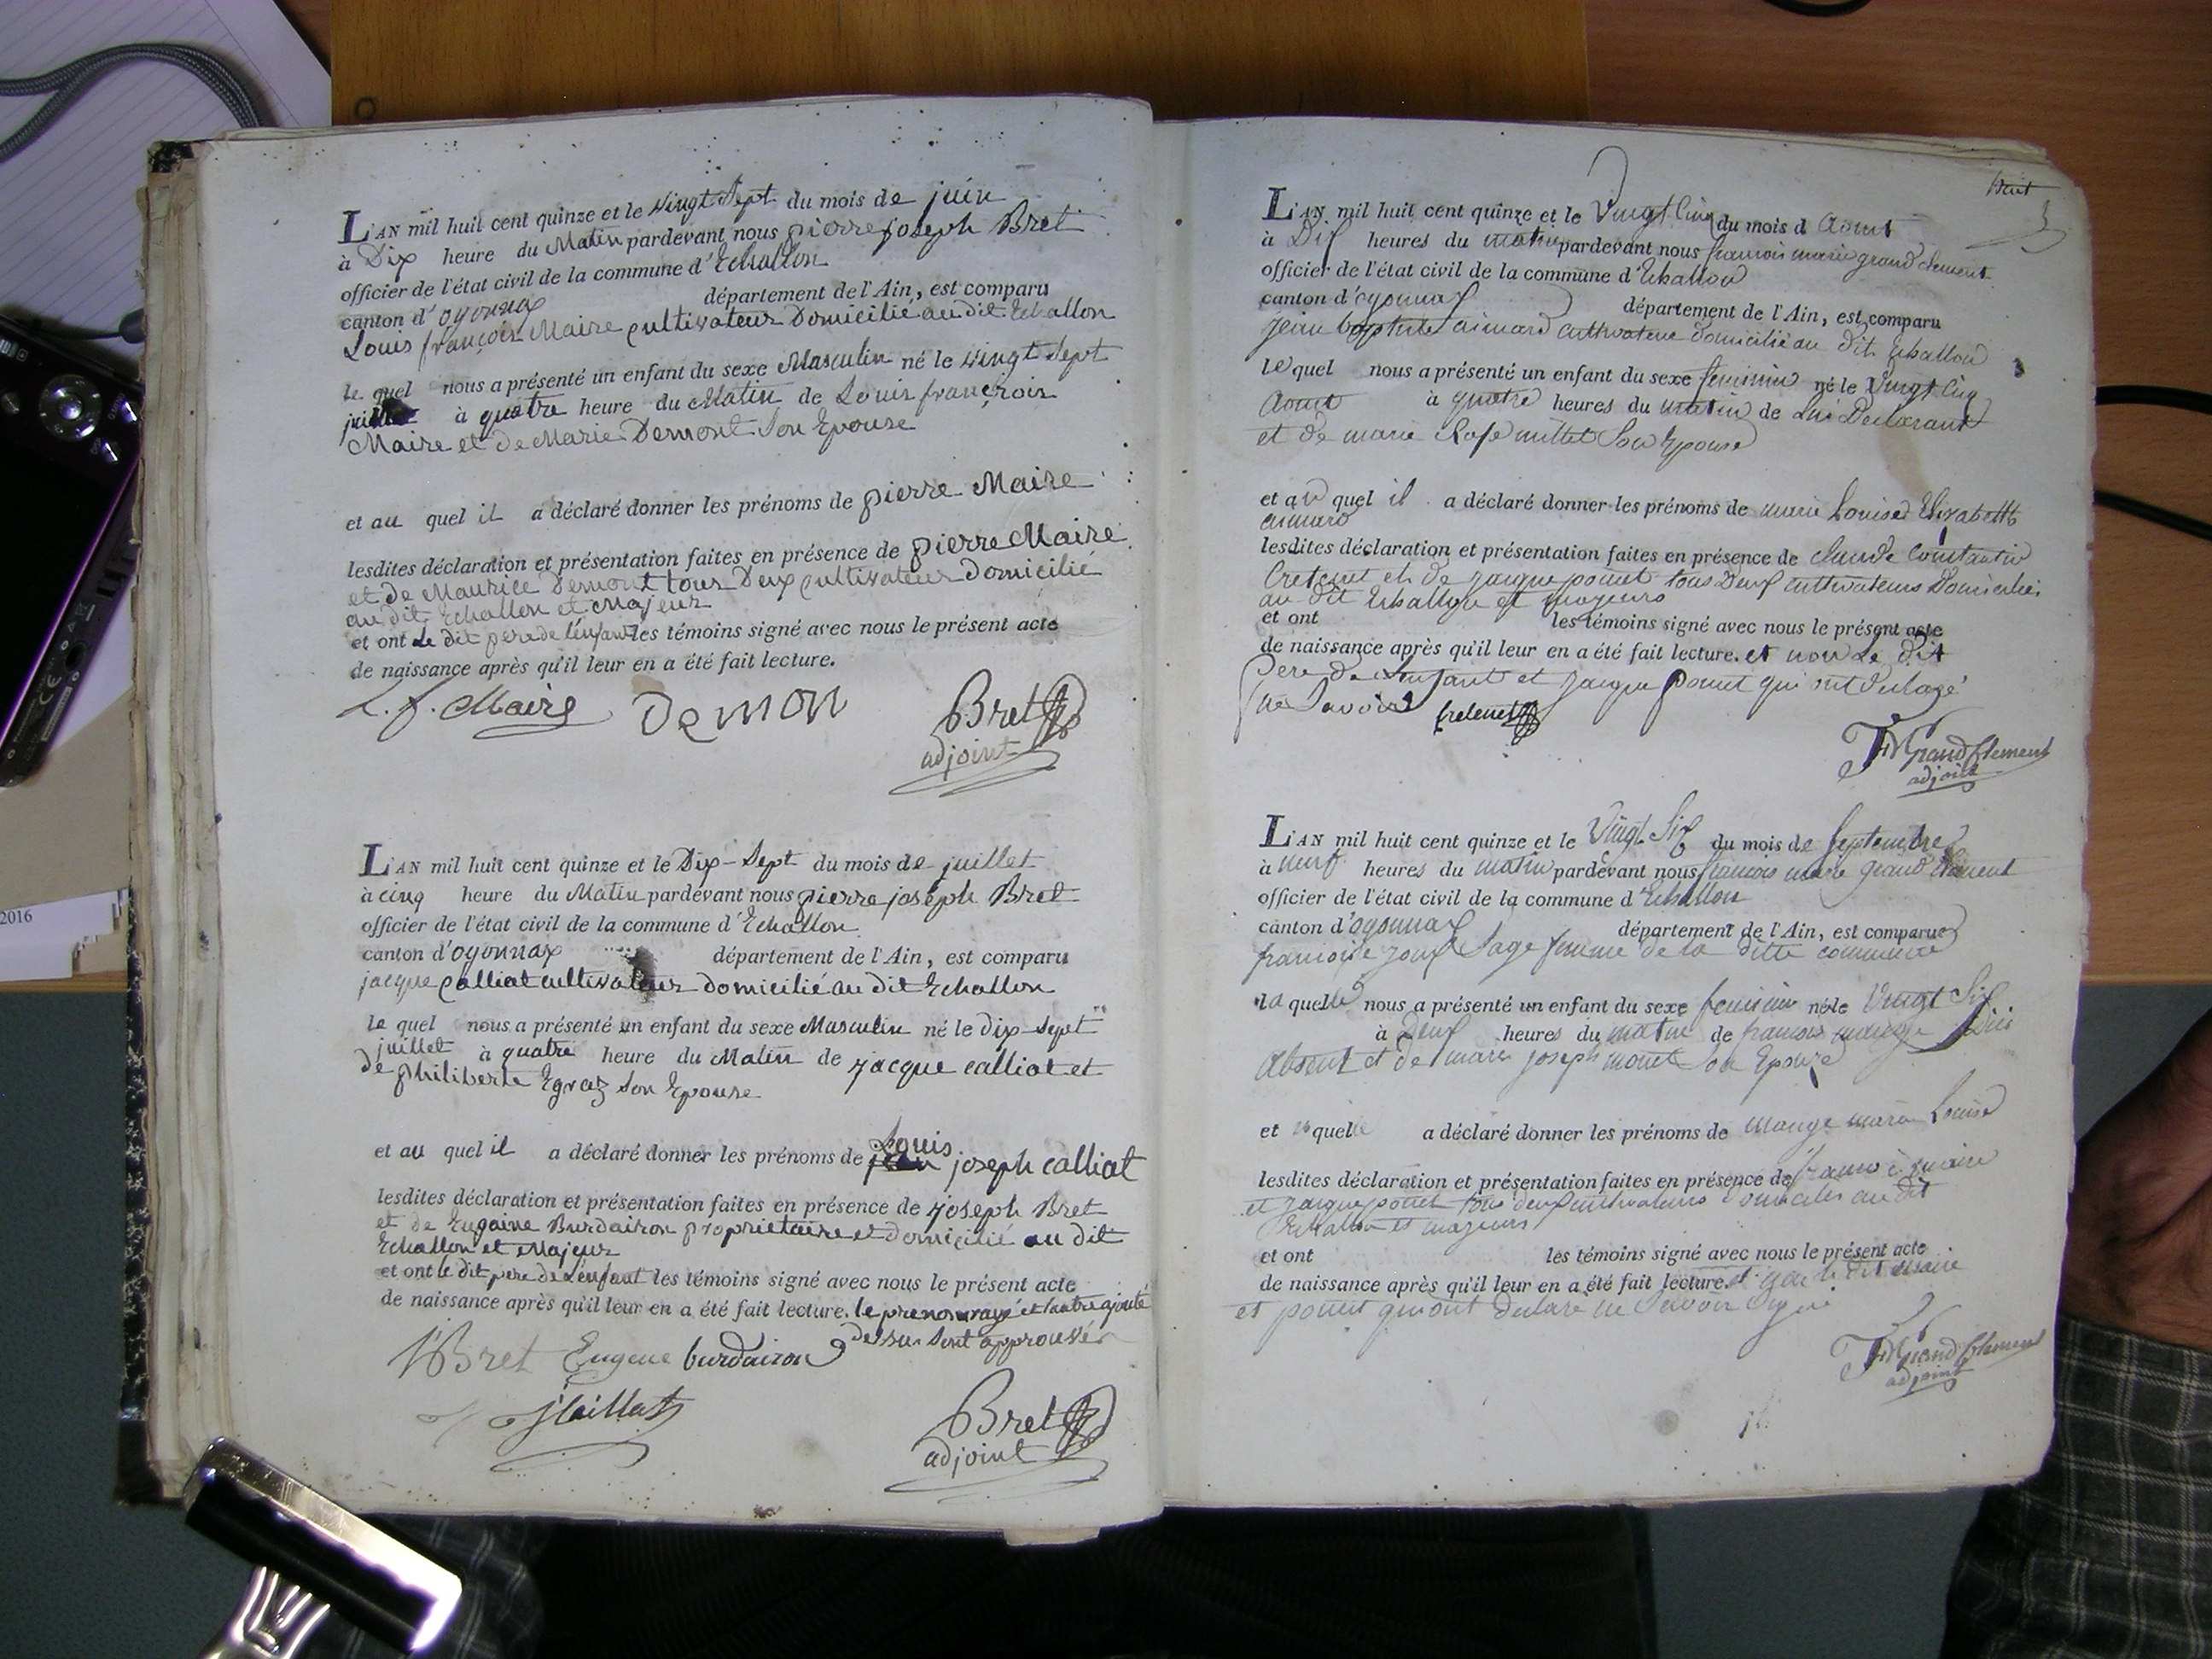 L'AN mil huit cent quinze et le vingt Sept du mois de juin
à Dix heure du Matin pardevant nous pierre joseph Bret
officier de l'état civil de la commune d'Echallon
canton d'oyonnax département de l'Ain, est comparu
Louis françois Maire cultivateur Domicilié au dit Echallon
le quel nous a présenté un enfant du sexe Masculin né le vingt Sept
à quatre heure du Matin de Louis françois
Maire et de Marie Demont Son Epouse
et au quel il a déclaré donner les prénoms de pierre Maire
lesdites déclaration et présentation faites en présence de pierre Maire
et de Maurice Demont tous Deux cultivateur Domicilié
au dit Echallon et Majeur
et ont le dit pere de l'enfant les témoins signé avec nous le présent acte
de naissance après qu'il leur en a été fait lecture.
L. f. Maire Demon Bret
adjoint
L'AN mil huit cent quinze et le Dix-Sept du mois de juillet
à cinq heure du Matin pardevant nous pierre joseph Bret
officier de l'état civil de la commune d'Echallon
canton d'oyonnax département de l'Ain, est comparu
jacque calliat cultivateur domicilié au dit Echallon
le quel nous a présenté un enfant du sexe Masculin né le dix-sept
juillet à quatre heure du Matin de jacque calliat et
de philiberte Egraz Son Epouse
Louis
et au quel il a déclaré donner les prénoms de joseph calliat
lesdites déclaration et présentation faites en présence de joseph Bret
et de Eugaine Burdairon proprietaire et domicilié au dit
Echallon et Majeur
et ont le dit pere de L'enfant les témoins signé avec nous le présent acte
de naissance après qu'il leur en a été fait lecture. le prenom rayé et l'autre ajouté
dessu sont approuvér
Bret Eugene burdairon
Bret
adjoint
L'AN mil huit cent quinze et le Vingt Cinq du mois d Aout
à Dix heures du matin pardevant nous francois marie grand clement
officier de l'état civil de la commune d'Echallon
canton d'oyonnax département de l'Ain, est comparu
jean baptiste aimard cultivateur domicilié au dit Echallon
le quel nous a présenté un enfant du sexe feminin né le Vingt Cinq
Aout à quatre heures du matin de Lui Declarant
et de marie Rose millet Son Epouse
et au quel il a déclaré donner les prénoms de marie Louise Elizabetth
aimard
lesdites déclaration et présentation faites en présence de claude Constantin
Cretenet et de jacque ponet tous Deux cultivateurs Domicilies
au dit Echallon et majeurs
et ont les témoins signé avec nous le présent acte
de naissance après qu'il leur en a été fait lecture. et non Le dit
Pere de l'enfant et jacque ponet qui ont Declaré
ne Savoir Cretenet
FM Grand Clement
adjoint
L'AN mil huit cent quinze et le Vingt Six du mois de Septembre
à neuf heures du matin pardevant nous francois marie grand Clement
officier de l'état civil de la commune d'Echallon
canton d'oyonnax département de l'Ain, est comparue
francoise Sage femme de la ditte commune
la quelle nous a présenté un enfant du sexe feminin né le Vingt Six
à Deux heures du matin de francois
Absent et de marie joseph Son Epouse
et quelle a déclaré donner les prénoms de marie Louise
lesdites déclaration et présentation faites en présence de maire
et jacque ponet tous deux cultivateurs domicilies au dit
Echallon et majeurs
et ont les témoins signé avec nous le présent acte
de naissance après qu'il leur en a été fait lecture. dit maire
et ponet qui ont declaré ne Savoir Signé
FM Grand Clement
adjoint
2016